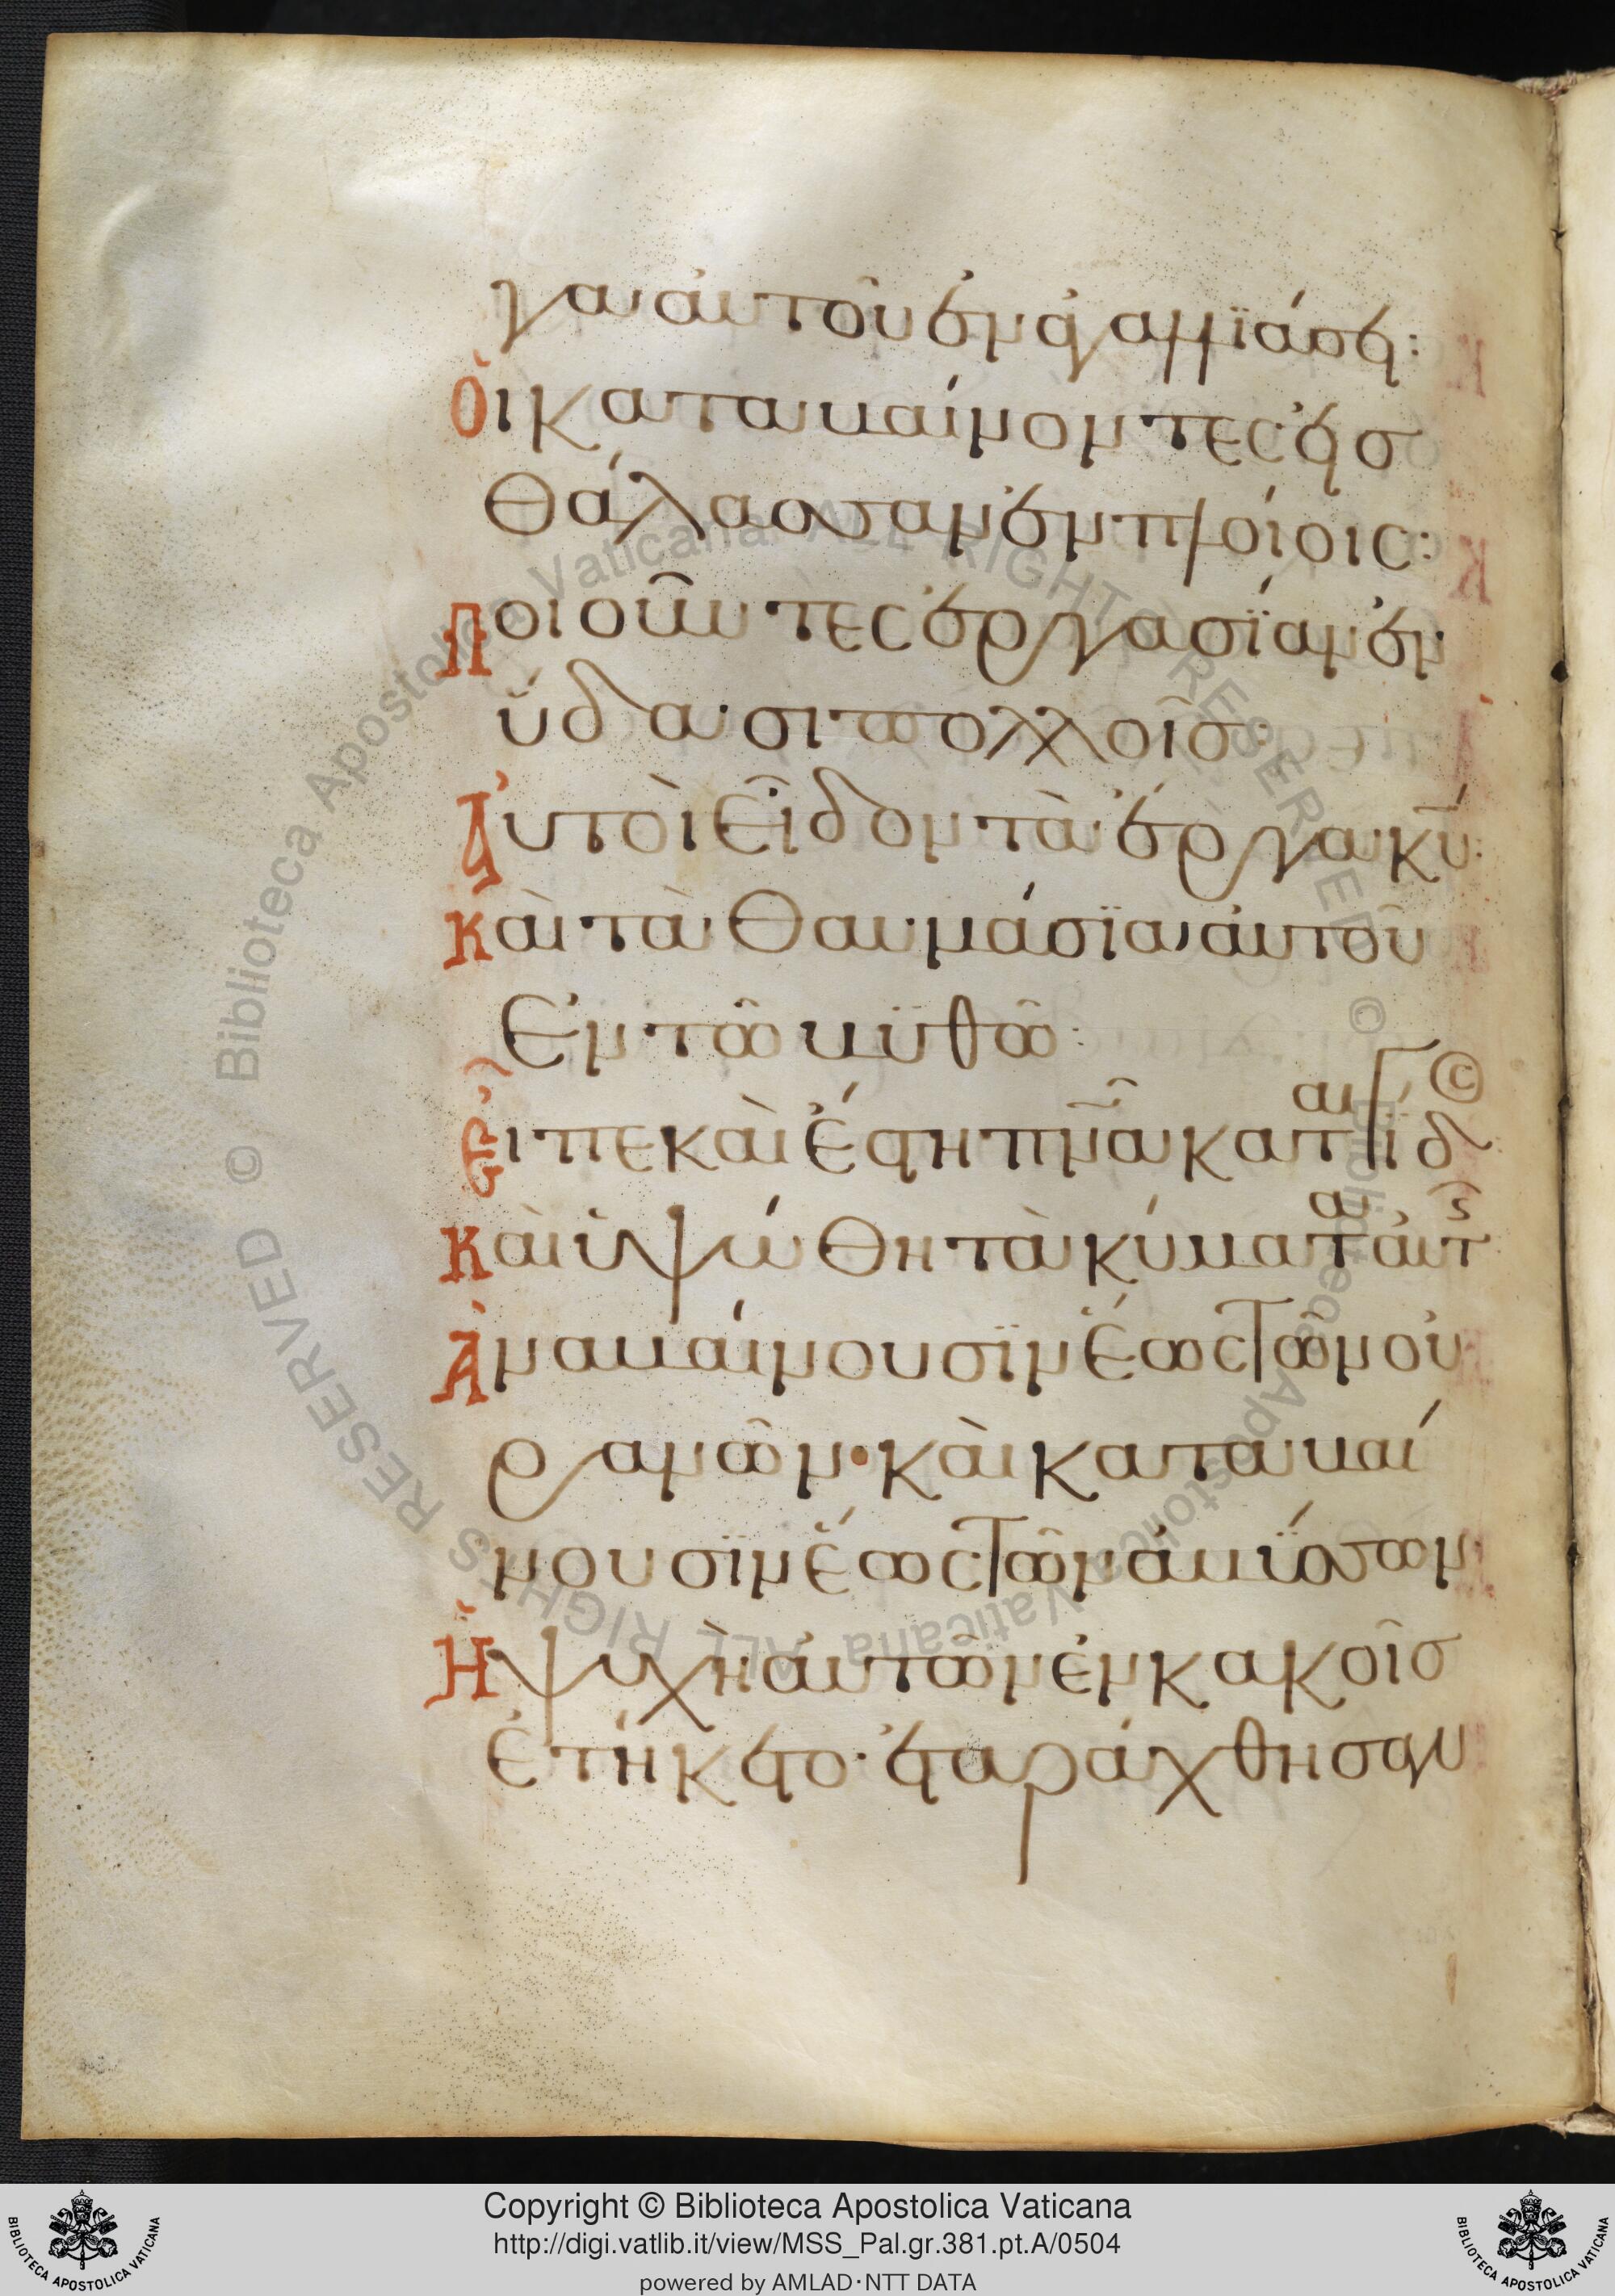 γα αὐτοῦ ἐν ἀγαλλϊάσει:
Ὁι καταβαίνοντες εἰσ
θάλασσαν ἐν πλοίοις:
Ποιοῦντες ἐργασΐαν ἐν
ὕδασι πολλοῖσ:
Ἀυτοὶ εἶδον τὰ ἔργα κ̅υ̅:
Καὶ τὰ θαυμάσϊα αὐτοῦ
Ἐν τῶ βϋθῶ:
Εἶπε καὶ ἔστη π̅ν̅α̅ καταιγίδ
Καὶ ὑψώθη τὰ κύματα αὐτῆς
Ἀναβαίνουσϊν ἕως τῶν οὐ
ρανῶν· καὶ καταβαί
νουσϊν ἕως τῶν ἀβΰσσων
Ἡ ψυχὴ αὐτῶν ἐν κακοῖσ
ἐτήκετο· ἐταράχθησαν
© Biblioteca Apostolica Vaticana ALL RIGHTS RESERVED © Biblioteca Apostolica Vaticana ALL RIGHTS RESERVED
Copyright © Biblioteca Apostolica Vaticana
http://digi.vatlib.it/view/MSS_Pal.gr.381.pt.A/0504
powered by AMLAD·NTT DATA
BIBLIOTECA APOSTOLICA VATICANA
BIBLIOTECA APOSTOLICA VATICANA